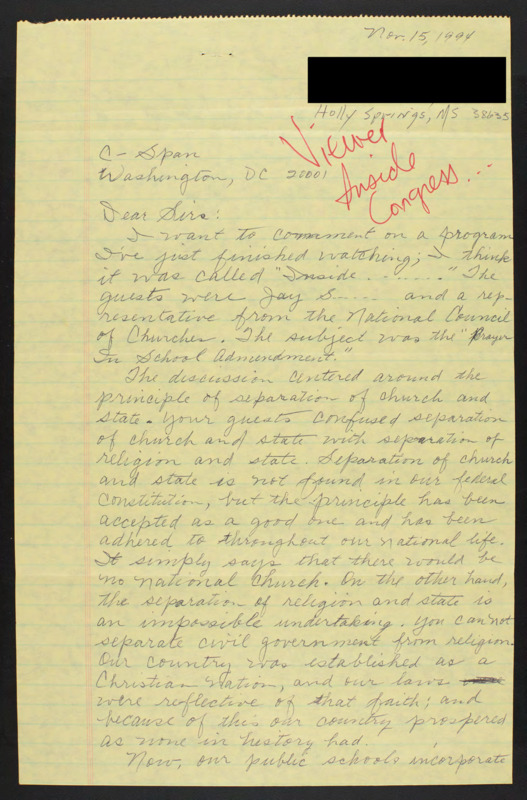 Nov. 15, 1994
Holly Springs, MS 38635
Viewer
Inside
Congress...
C-Span
Washington, DC 20001
Dear Sirs:
I want to comment on a program
I've just finished watching; I think
it was called "Inside . . . . . . . ." The
guests were Jay S----- and a rep-
resentative from the National Council
of Churches. The subject was the "Prayer
In School Admendment."
The discussion centered around the
principle of separation of church and
state. Your guests confused separation
of church and state with separation of
religion and state. Separation of church
and state is not found in our federal
constitution, but the principle has been
accepted as a good one and has been
adhered to throughout our national life.
It simply says that there would be
no national church. On the other hand,
the separation of religion and state is
an impossible undertaking. You can not
separate civil government from religion.
Our country was established as a
Christian nation, and our laws
were reflective of that faith; and
because of this our country prospered
as none in history had.
Now, our public schools incorporate